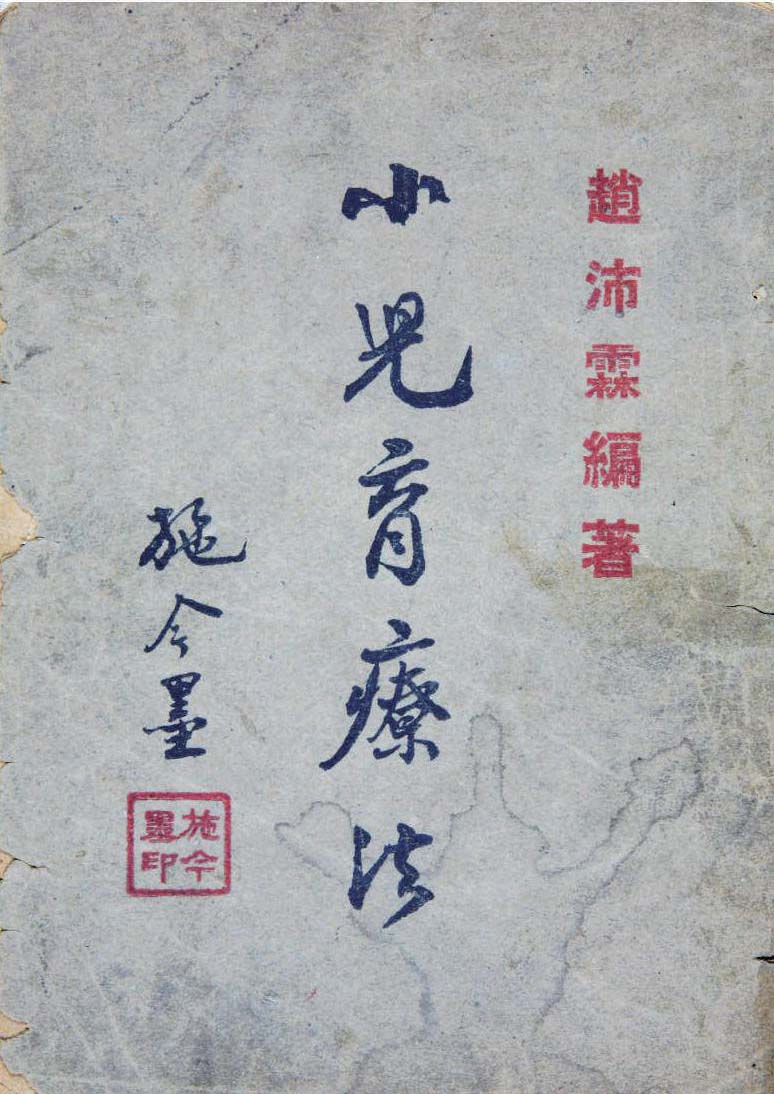 趙沛霖編著
小児育療法
施今墨
施今
墨印